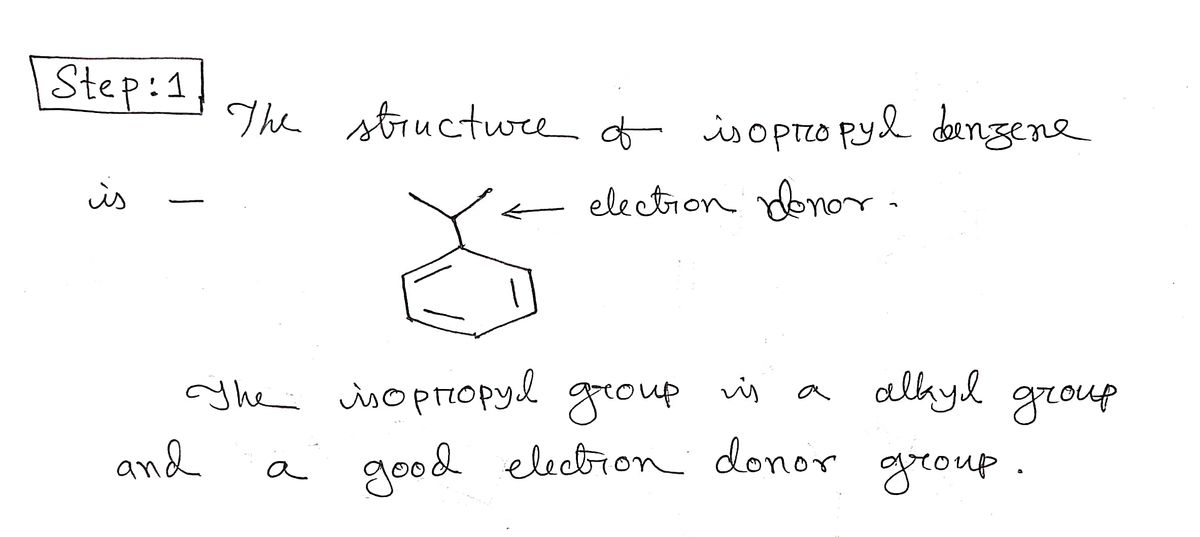 Step:1
The structure of isopropyl benzene
is — ← electron donor.
The isopropyl group is a alkyl group
and a good electron donor group.